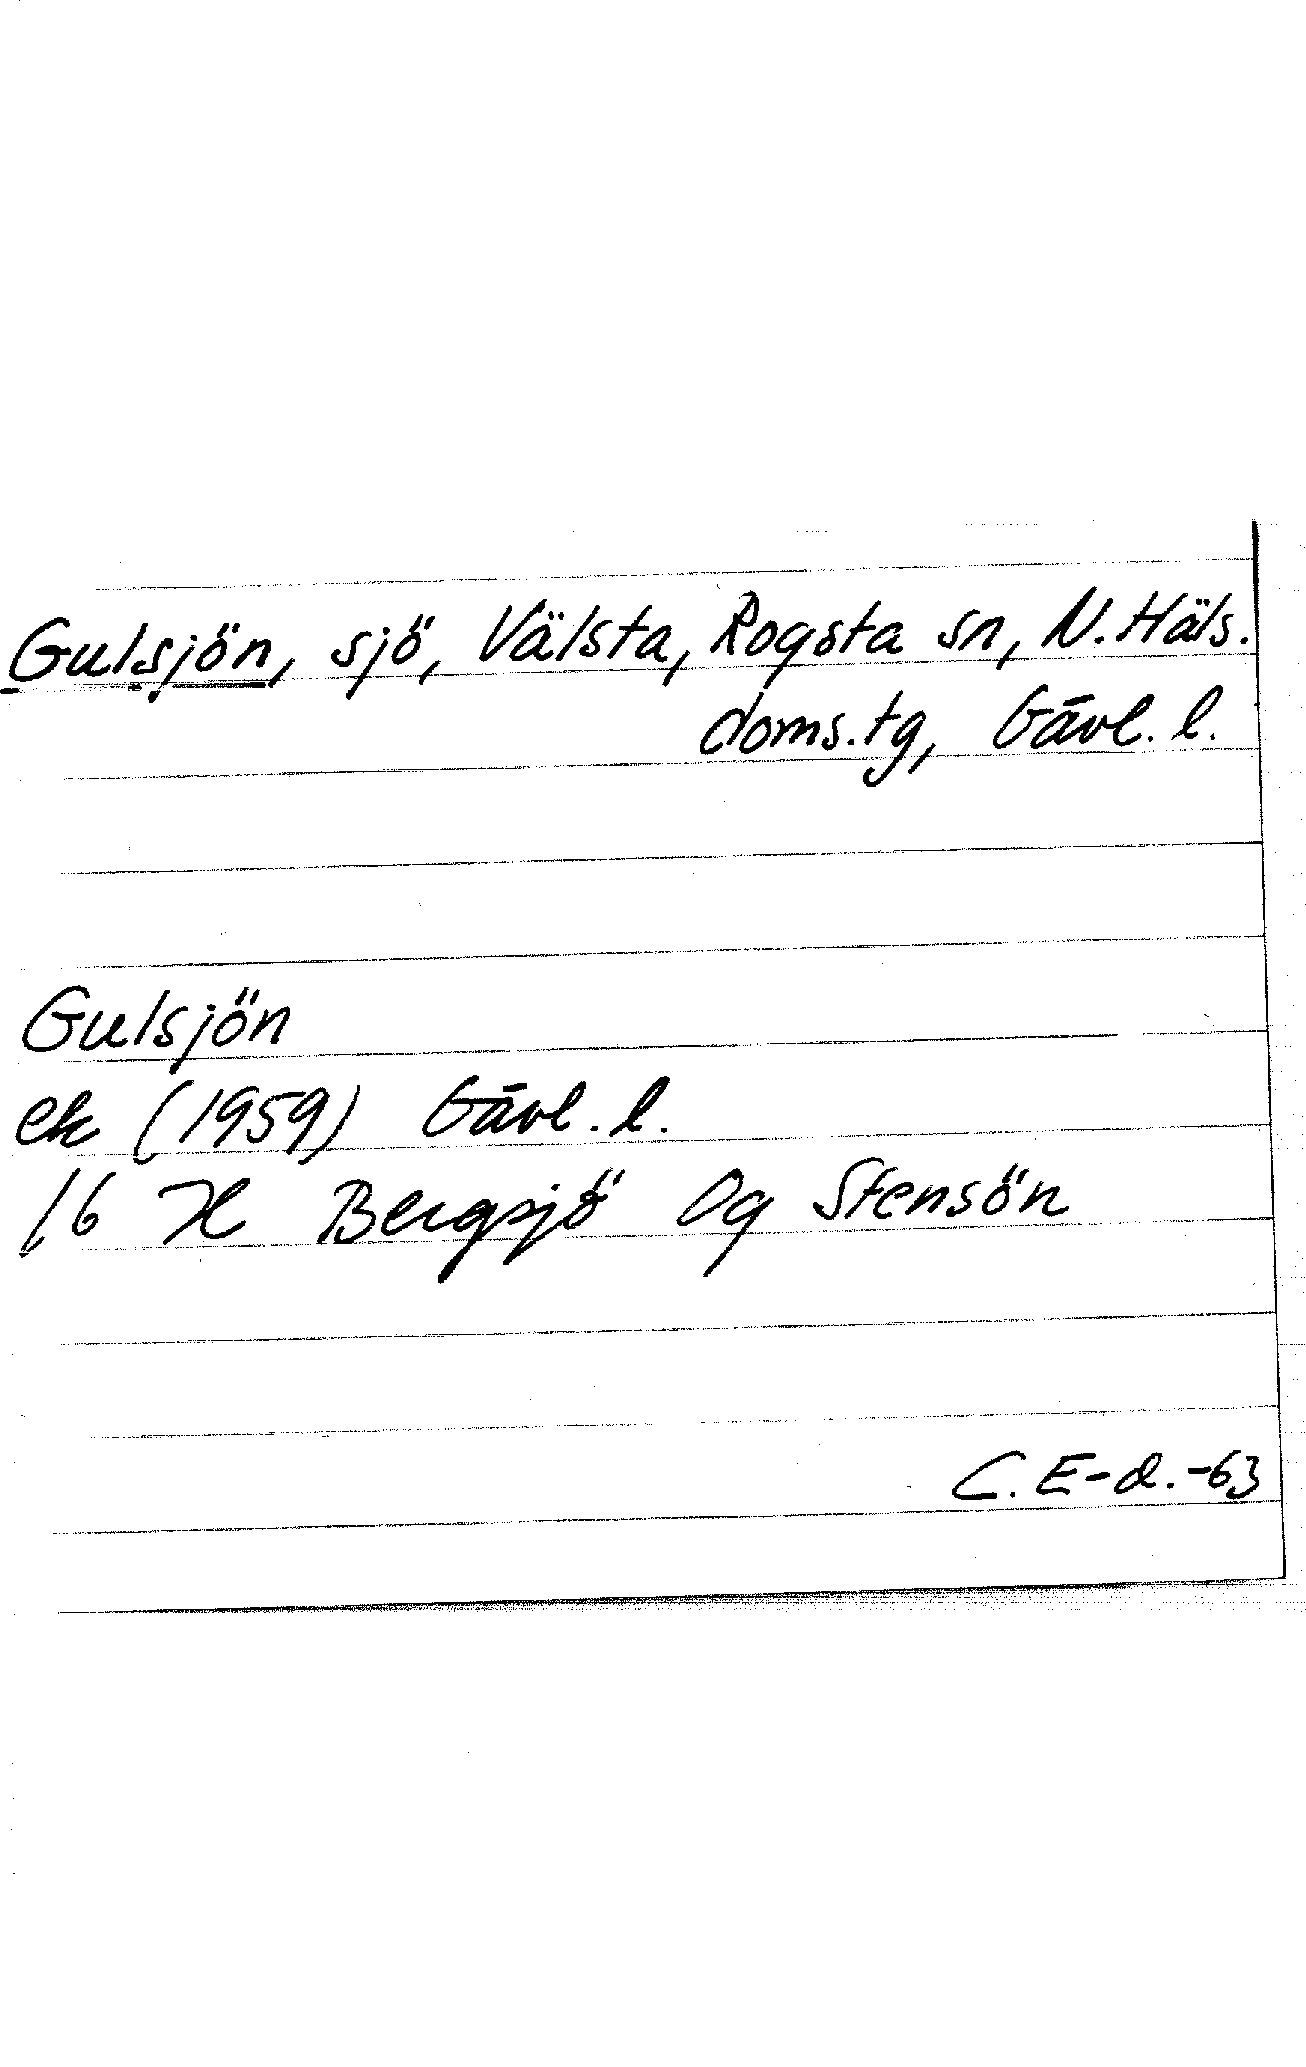 Gulsjön, sjö, Välsta, Rogsta sn, N. Häls.
doms.tg, Gävl. l.
Gulsjön
ek (1959) Gävl. l.
16 H Bergsjö Og Stensön
C. E-d. -63